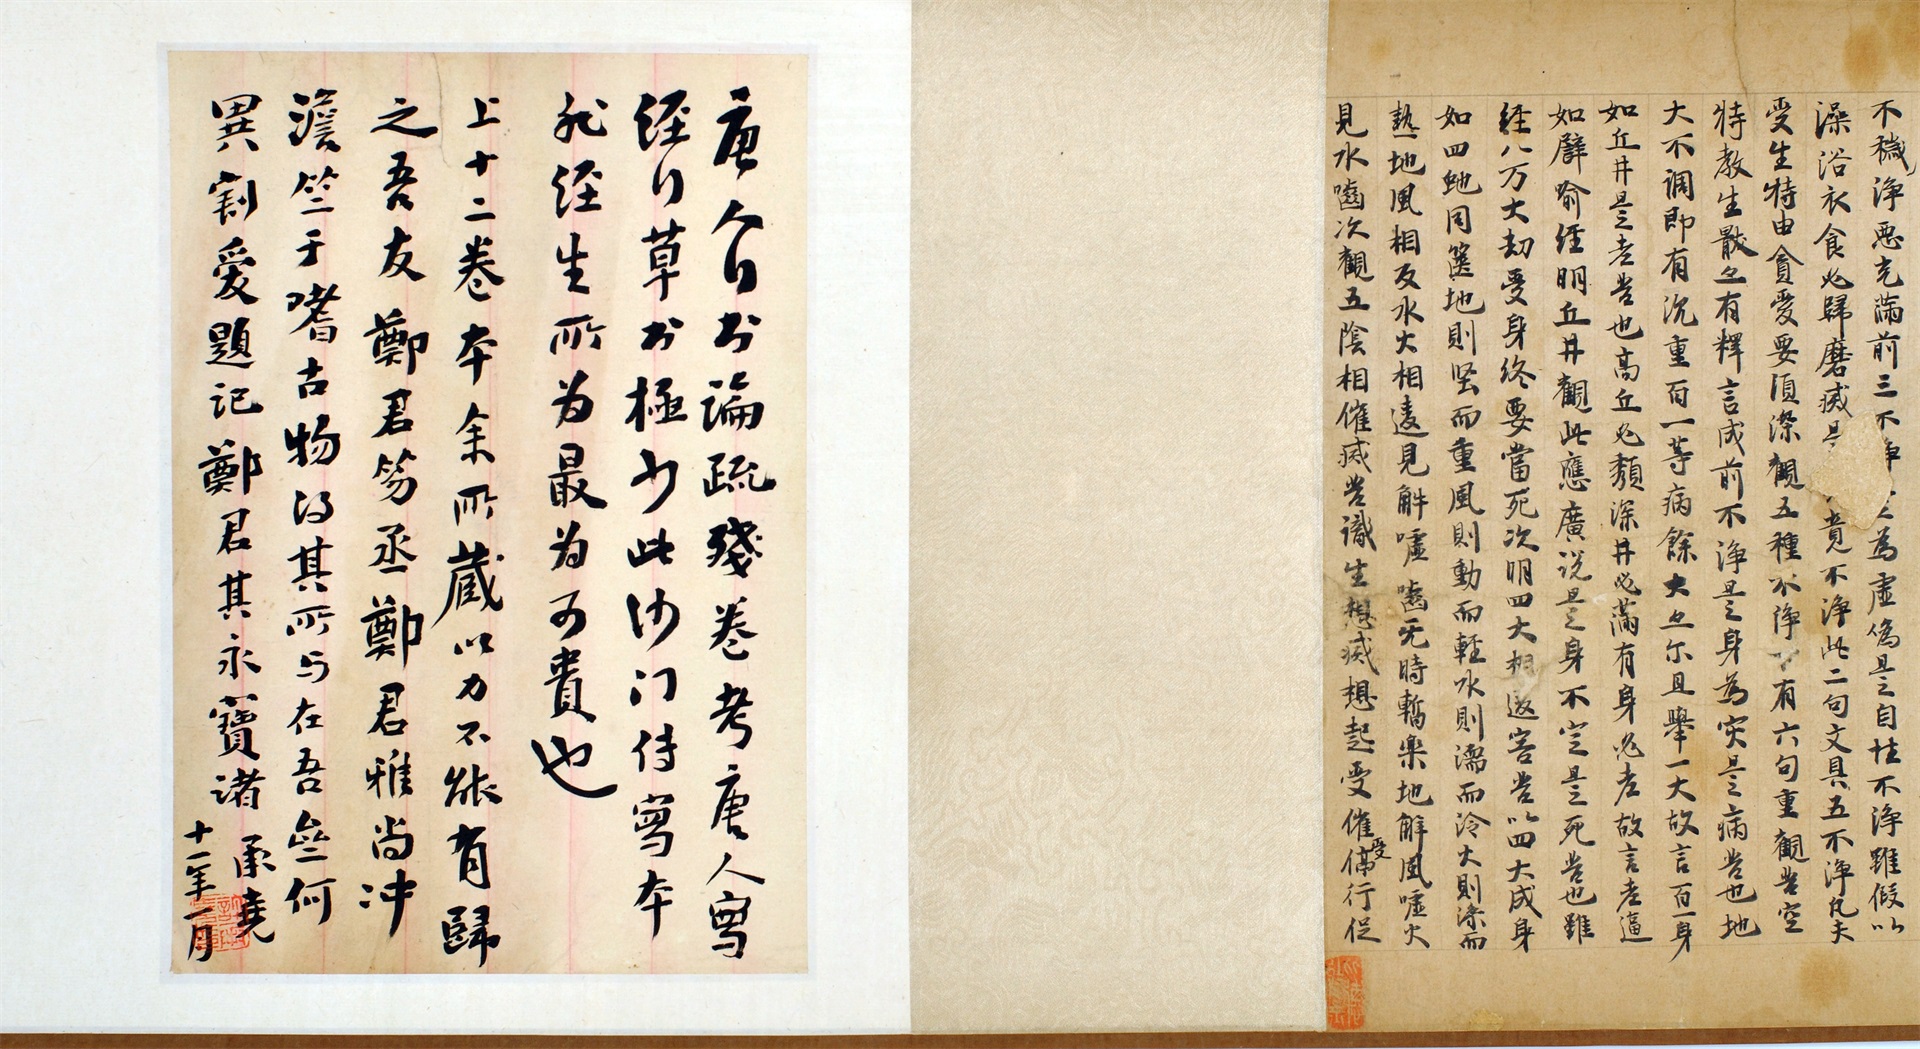 不穢淨惡充滿前三不淨為虛偽是自性不淨雖假以
澡浴衣食必歸磨滅是竟不淨此二句文具五不淨凡夫
受生特由貪愛要須深觀五種不淨下有六句重觀苦空
特教生猒〻有釋言成前不淨是身為灾是病苦也地
大不調即有沉重百一等病餘大〻尔且舉一大故言百一身
如丘井是老苦也高丘必頹深井必滿有身必老故言老逼
如辟喻經明丘井觀此應廣說是身不定是死苦也雖
經八万大劫受身終要當死次明四大相返害苦以四大成身
如四虵同篋地則坚而重風則動而輕水則濡而冷火則而
熱地風相反水火相違見解噓嚙无時暫樂地解風噓火
見水嚙次觀五陰相催滅苦識生想滅想起受催受行促
唐人行书論疏殘卷考唐人寫
經行草书極少此沙门侍寫本
非經生所为最为可貴也
上十二卷本余所藏以力不能有歸
之吾友鄭君笏丞鄭君雅尚冲
澹竺于嗜古物得其所与在吾無何
異割愛題記鄭君其永寶諸承堯
十一年一月